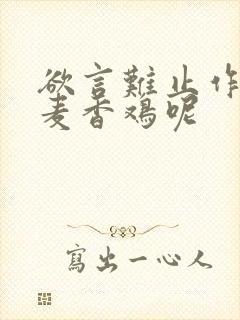 欲言難止作
麦香鸡呢
寫出一心人